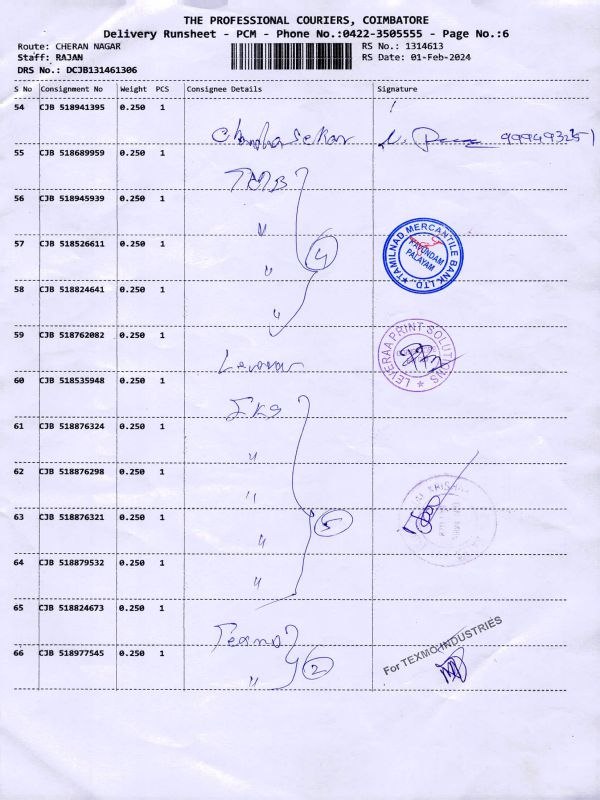 THE PROFESSIONAL COURIERS, COIMBATORE
Delivery Runsheet - PCM - Phone No.:0422-3505555 - Page No.:6
Route: CHERAN NAGAR RS No.: 1314613
Staff: RAJAN RS Date: 01-Feb-2024
DRS No.: DCJB131461306
S No Consignment No Weight PCS Consignee Details Signature
54 CJB 518941395 0.250 1
55 CJB 518689959 0.250 1 TMB
56 CJB 518945939 0.250 1 "
57 CJB 518526611 0.250 1 " 4 TAMILNAD MERCANTILE BANK LTD. KAVUNDAM PALAYAM
58 CJB 518824641 0.250 1 "
59 CJB 518762082 0.250 1 LEVERAA PRINT SOLUTIONS
60 CJB 518535948 0.250 1
61 CJB 518876324 0.250 1 "
62 CJB 518876298 0.250 1 "
63 CJB 518876321 0.250 1 " 5
64 CJB 518879532 0.250 1 "
65 CJB 518824673 0.250 1 Texmo
66 CJB 518977545 0.250 1 " 2 For TEXMO INDUSTRIES